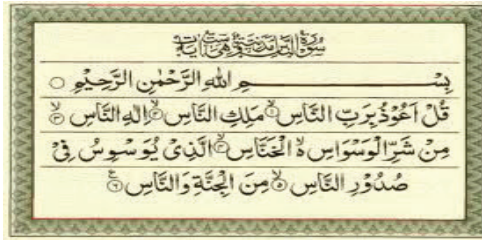 سُوْرَةُ النَّاسِ مَدَنِيَّةٌ وَّهِىَ سِتُّ اٰيَاتٍ
بِسْمِ اللّٰهِ الرَّحْمٰنِ الرَّحِيْمِ ○
قُلْ اَعُوْذُ بِرَبِّ النَّاسِ ۙ﴿۱﴾ مَلِكِ النَّاسِ ۙ﴿۲﴾ اِلٰهِ النَّاسِ ۙ﴿۳﴾
مِنْ شَرِّ الْوَسْوَاسِ ۙ۬ الْخَنَّاسِ ۙ﴿۴﴾ الَّذِىْ يُوَسْوِسُ فِىْ
صُدُوْرِ النَّاسِ ۙ﴿۵﴾ مِنَ الْجِنَّةِ وَالنَّاسِ ﴿۶﴾ ع